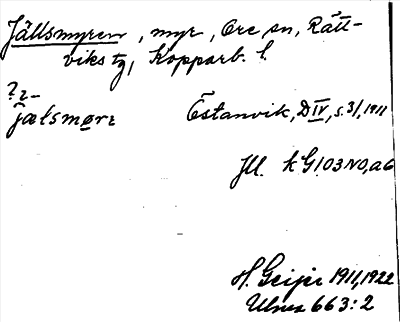 Jällsmyren, myr, Ore sn, Rätt-
viks tg, Kopparb. l.
Östanvik, D IV, s. 31, 1911
jælsmør
Jll. k G103NO, a6
H. Geijer 1911, 1922
Ulma 663:2